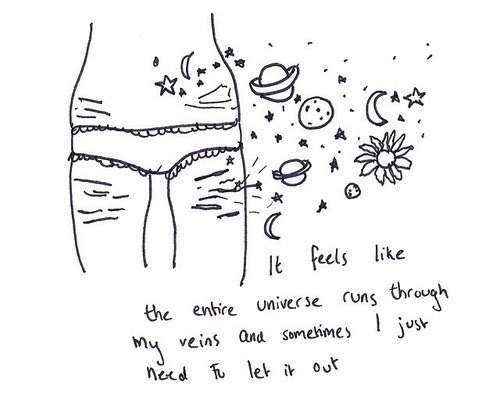 It feels like
the entire universe runs through
my veins and sometimes I just
need to let it out